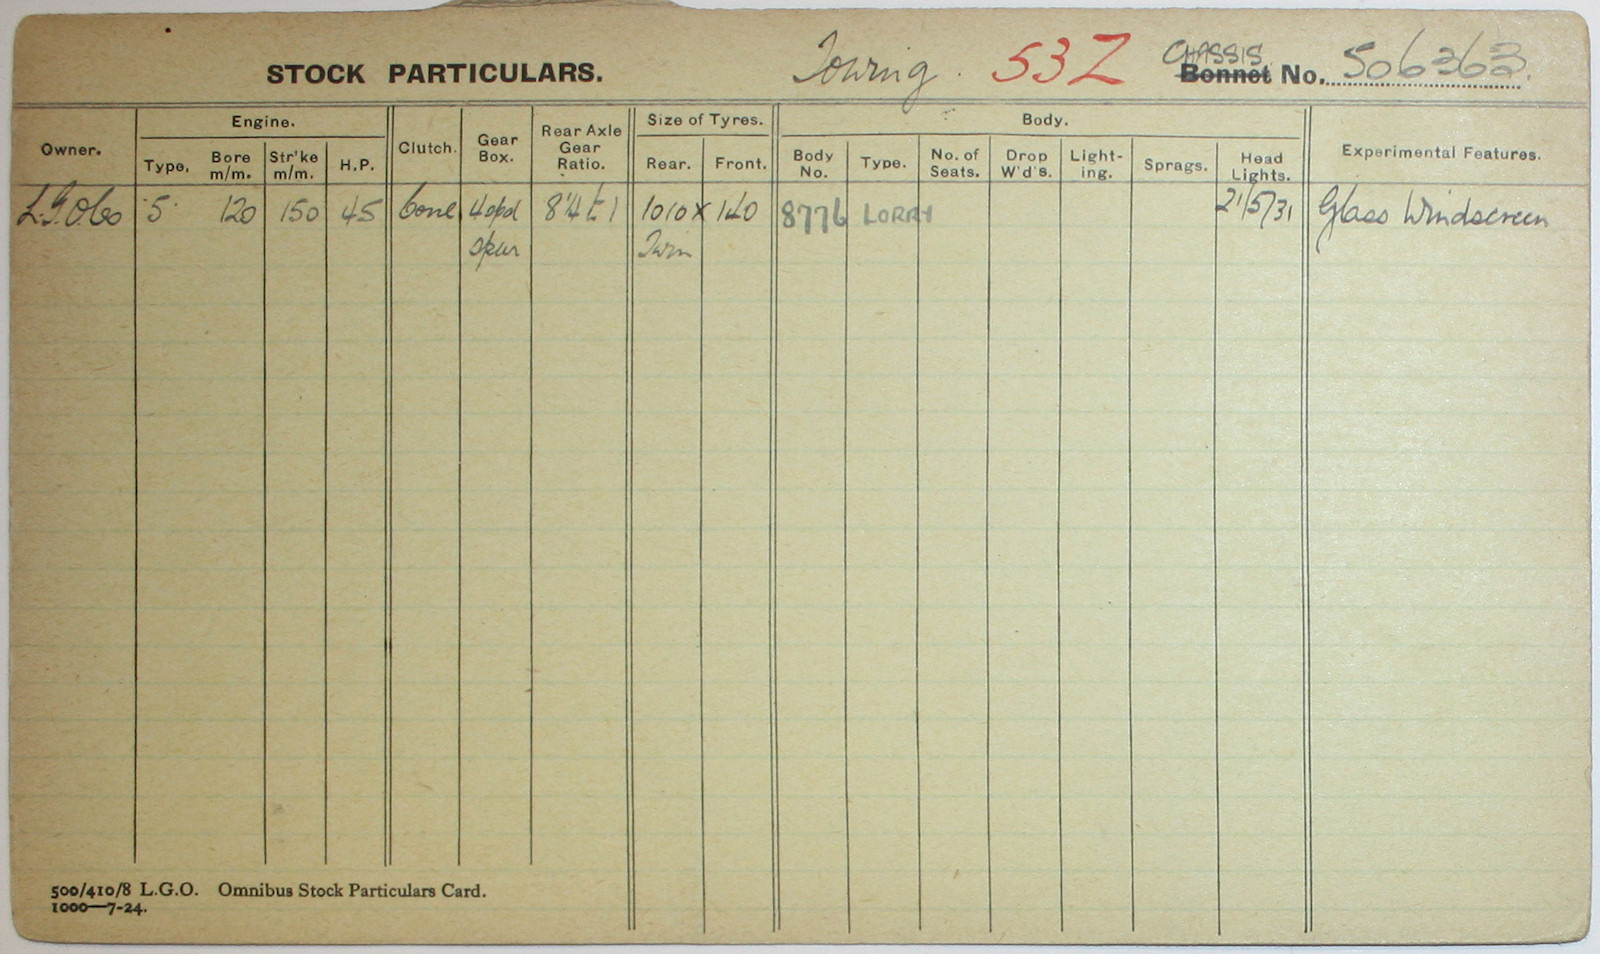 STOCK PARTICULARS. Towing. 53Z CHASSIS Bonnet No. 506363.
Owner. Engine. Clutch. Gear Box. Rear Axle Gear Ratio. Size of Tyres. Body. Experimental Features.
Type. Bore m/m. Str'ke m/m. H.P. Rear. Front. Body No. Type. No. of Seats. Drop W'd's. Light-ing. Sprags. Head Lights.
L.G.O.Co 5 120 150 45 Cone 4 spd 8'4 to 1 1010 x 140 8776 LORRY 21/5/31 Glass Windscreen
spur Twin
500/410/8 L.G.O. Omnibus Stock Particulars Card.
1000—7-24.